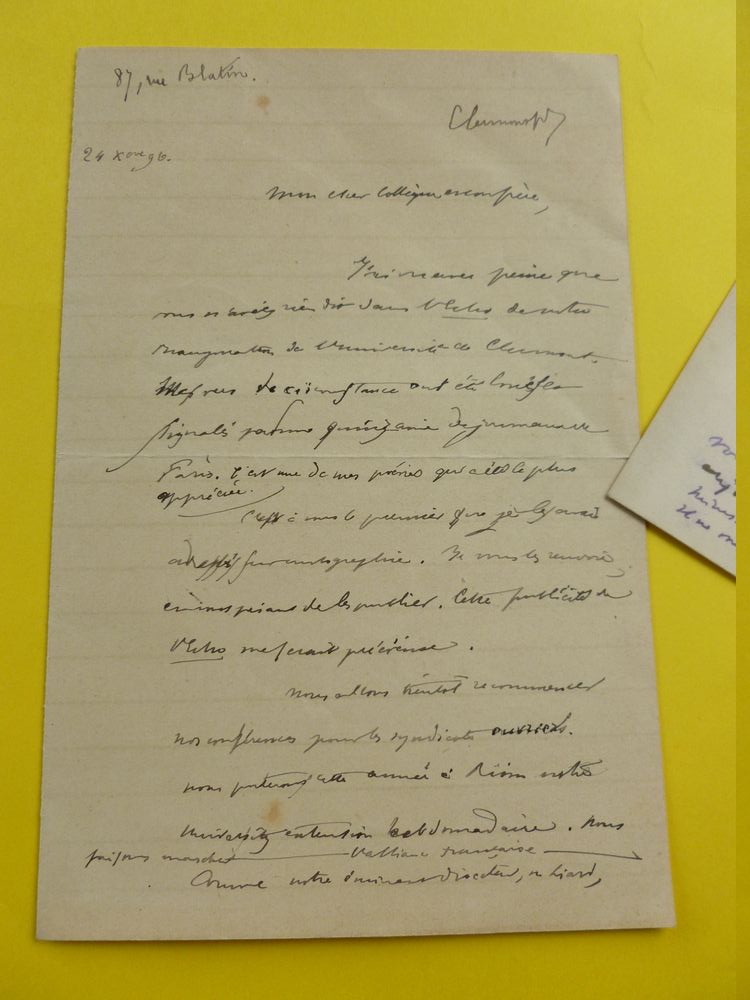 87, rue Blatin.
Clermont-Fd
24 Xbre 96.
Mon cher Collègue et confrère,
J'ai vu avec peine que
vous n'avez rien dit dans l'Echo de notre
inauguration de l'Université de Clermont.
Mes vers de circonstance ont été
signalés par une quinzaine de journaux de
Paris. C'est une de mes poésies qui a été le plus
appréciée.
C'est à vous le premier que je les avais
adressés sur autographie. Je vous les renvoie,
en vous priant de les publier. Cette publicité de
l'Echo me serait précieuse.
Nous allons bientôt recommencer
nos conférences pour les syndicats ouvriers.
Nous porterons cette année à Riom notre
University extension hebdomadaire. Nous
faisons marcher l'alliance française
Comme notre éminent directeur, M. Liard,